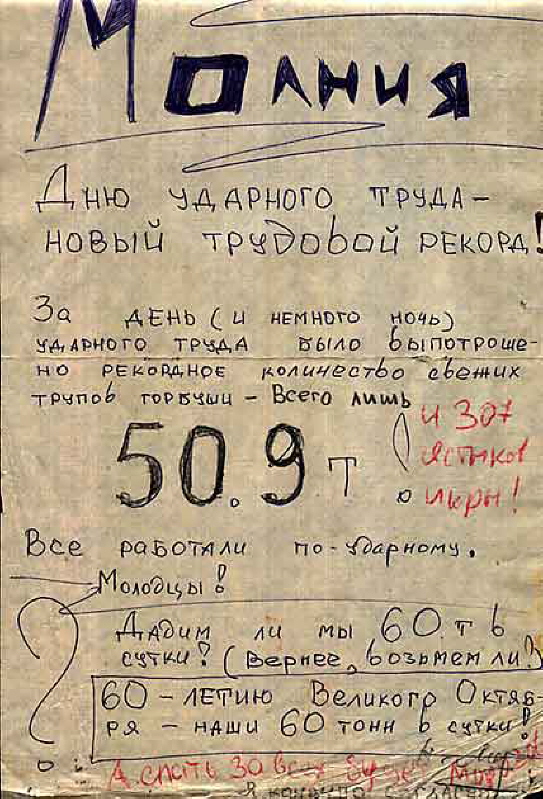 Молния
Дню ударного труда –
новый трудовой рекорд!
За день (и немного ночь)
ударного труда было выпотроше-
но рекордное количество свежих
трупов горбуши – Всего лишь
50.9 т
и 307
ястыков
икры!
Все работали по-ударному.
Молодцы!
Дадим ли мы 60 т в
сутки? (вернее, возьмем ли!)
60-летию Великого Октяб-
ря – наши 60 тонн в сутки!
А спать за всех будет
Я конечно согласен